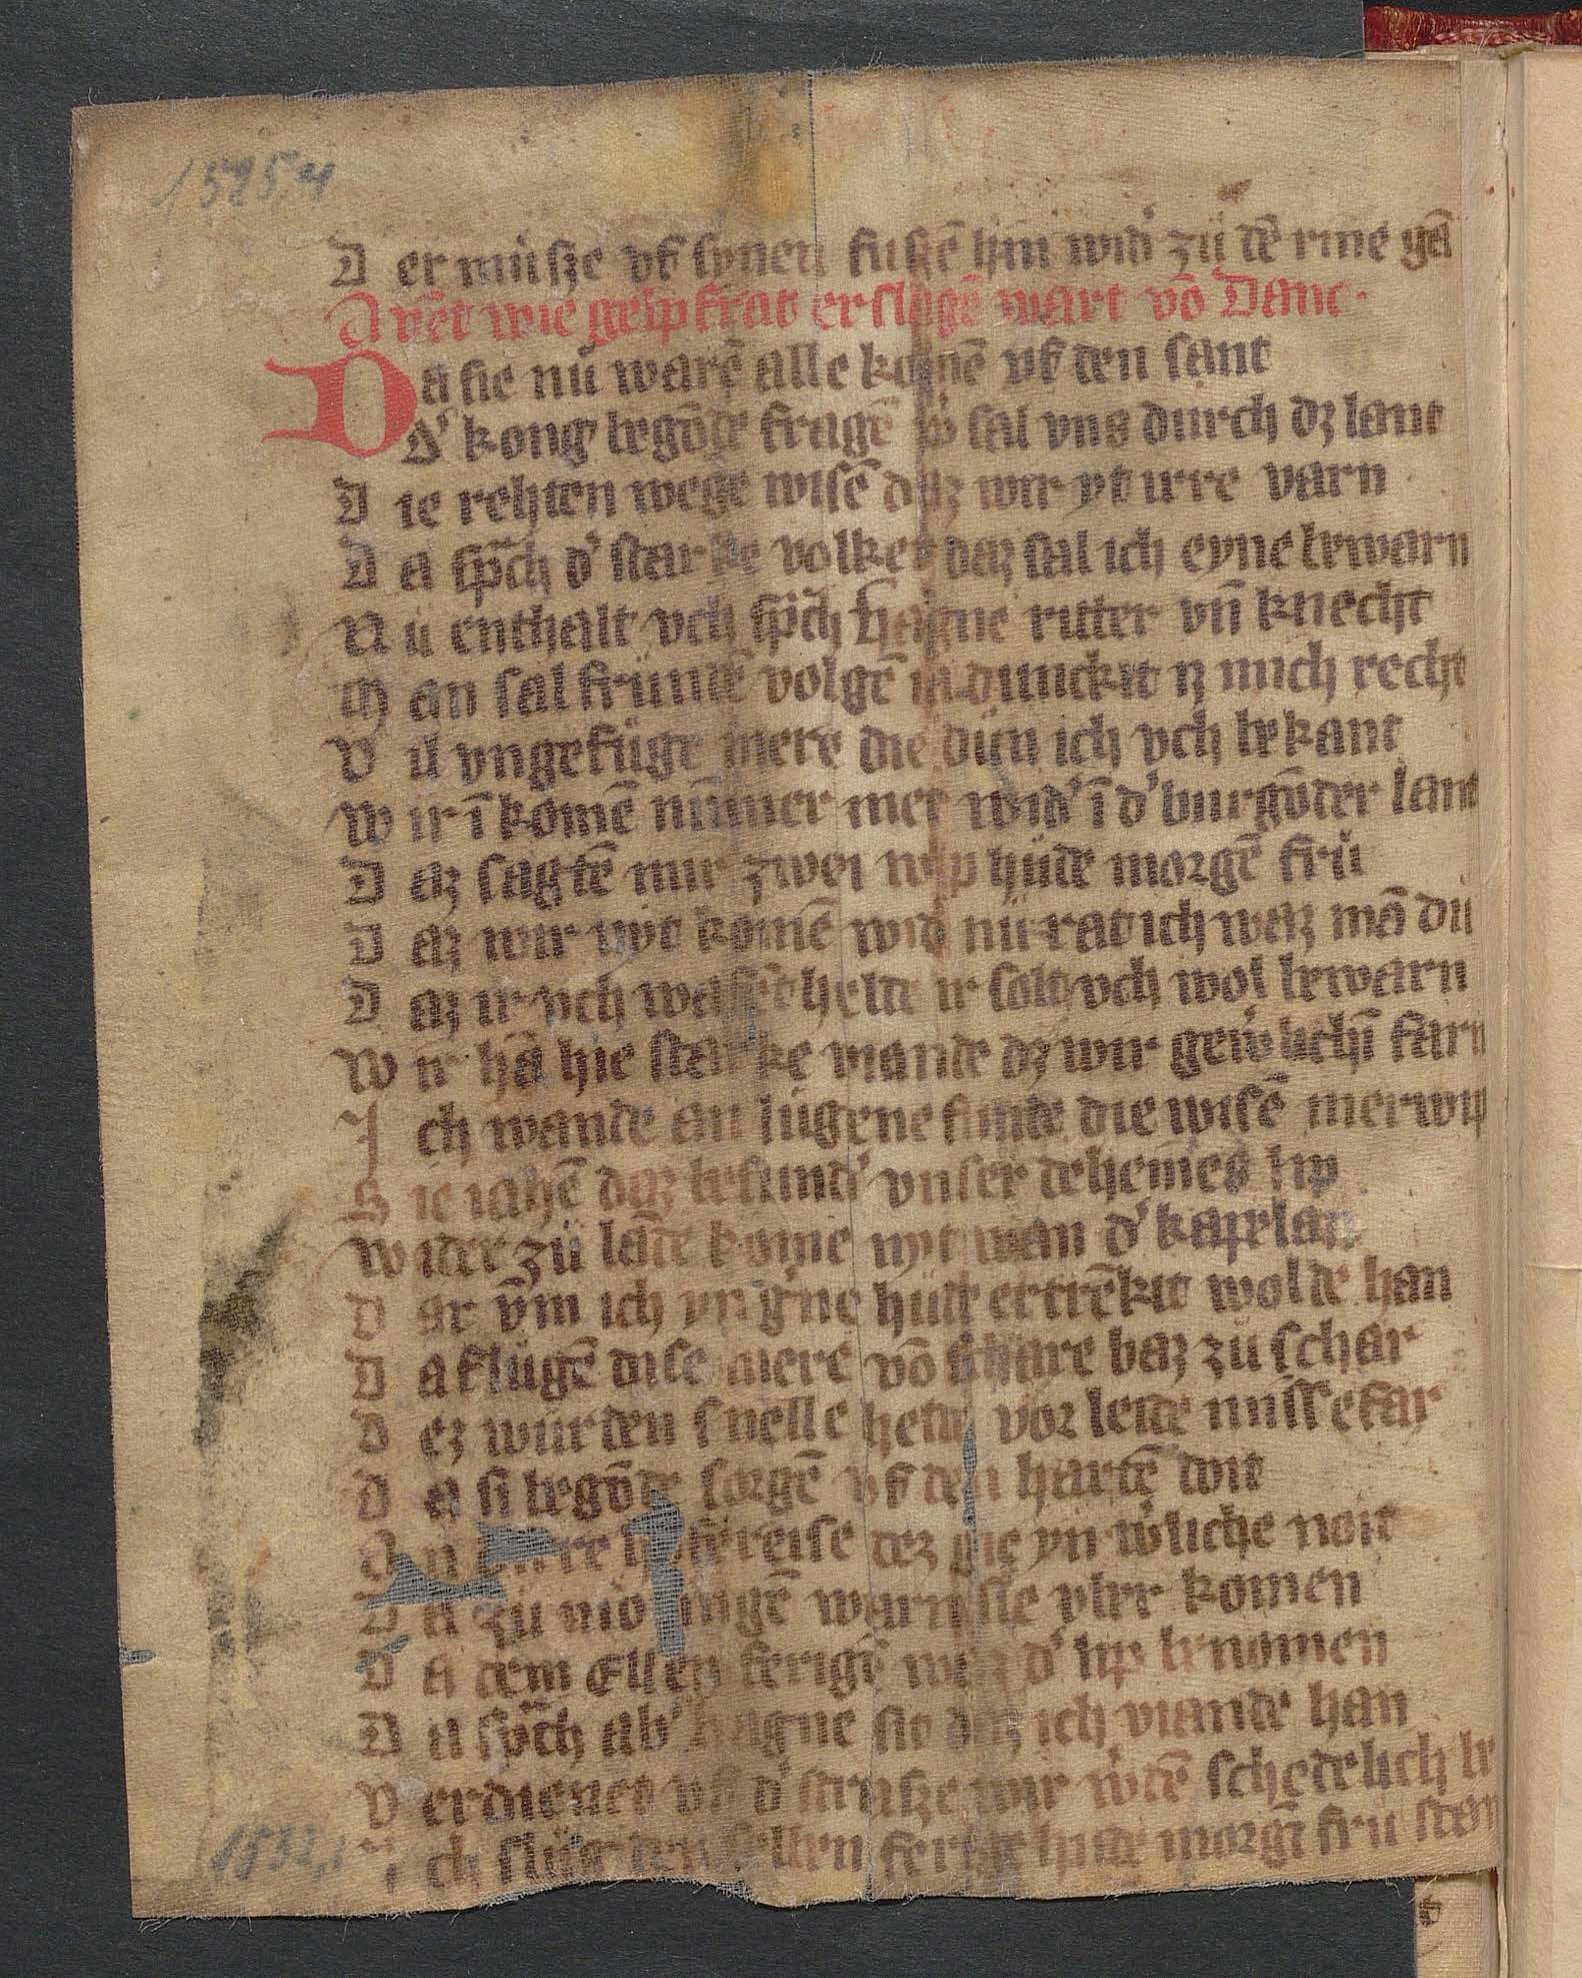 15254
D er müsze vf synen fuszē hin wid' zü dē rine gē
Avēt wie gelpfrat erslagē wart vō Danc.
Da sie nü warē alle komē vf den sant
D' kong begōde fragē w' sal vns durch dz lant
D ie rehten wege wisē daz wir yt irre varn
D a sp̄ch d' starke volker daz sal ich eyne bewarn
N ü enthalt vch sp̄ch Hagne ritter vn̄ knecht
M an sal fründē volgē ia dunckit iz mich recht
V il vngefüge mere die dün ich vch bekant
W ir ī komē nūmer mer wid' ī d' burgōder lant
D az sagtē mir zwei wip hüde morgē frü
D az wir nyt komē wid' nü rat ich waz mā dü
D az ir vch wafēt helde ir solt vch wol bewarn
W ir hā hie starke viande dz wir gew'lichī farn
J ch wande an lügene finde die wisē merwip
S ie iahē daz besund' vnser deheines lip
W ider zü lāde kome nyt wan d' kapelan
D ar v̄m ich yn g'ne hüte ertrēkit wolde han
D a flügē dise mere vō schare baz zü schar
D ez würden snelle helde vor leide missefar
D a si begōde sorgē vf den hartē doit
A n reise dez gie yn w'liche noit
D a zü mōringē warn sie vber komen
D a dem Ellen ferigē was d' lip benomen
D a sp̄ch ab' hagne sit daz ich viande han
V erdienet vf d' strasze wir w'dē schedelich be
J ch slüg den selben ferige hude morgī frü
1532,1